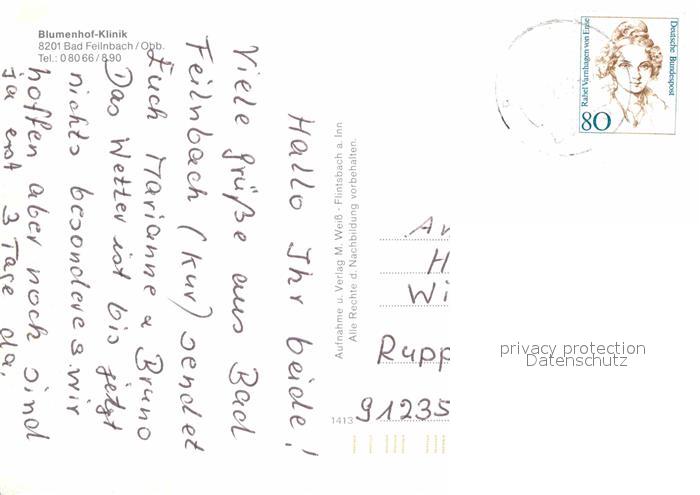 Blumenhof-Klinik
8201 Bad Feilnbach/Obb.
Tel.: 0 80 66 / 8 90
Hallo Ihr beide!
Viele grüße aus Bad
Feilnbach (Kur) sendet
Euch Marianne u Bruno
Das Wetter ist bis jetzt
nichts besonderes. wir
hoffen aber noch sind
ja erst 3 Tage da.
Aufnahme u. Verlag M. Weiß · Flintsbach a. Inn
Alle Rechte d. Nachbildung vorbehalten.
1413
Deutsche Bundespost
Rahel Varnhagen von Ense
80
An
H
Wi
Rupp
91235
privacy protection
Datenschutz